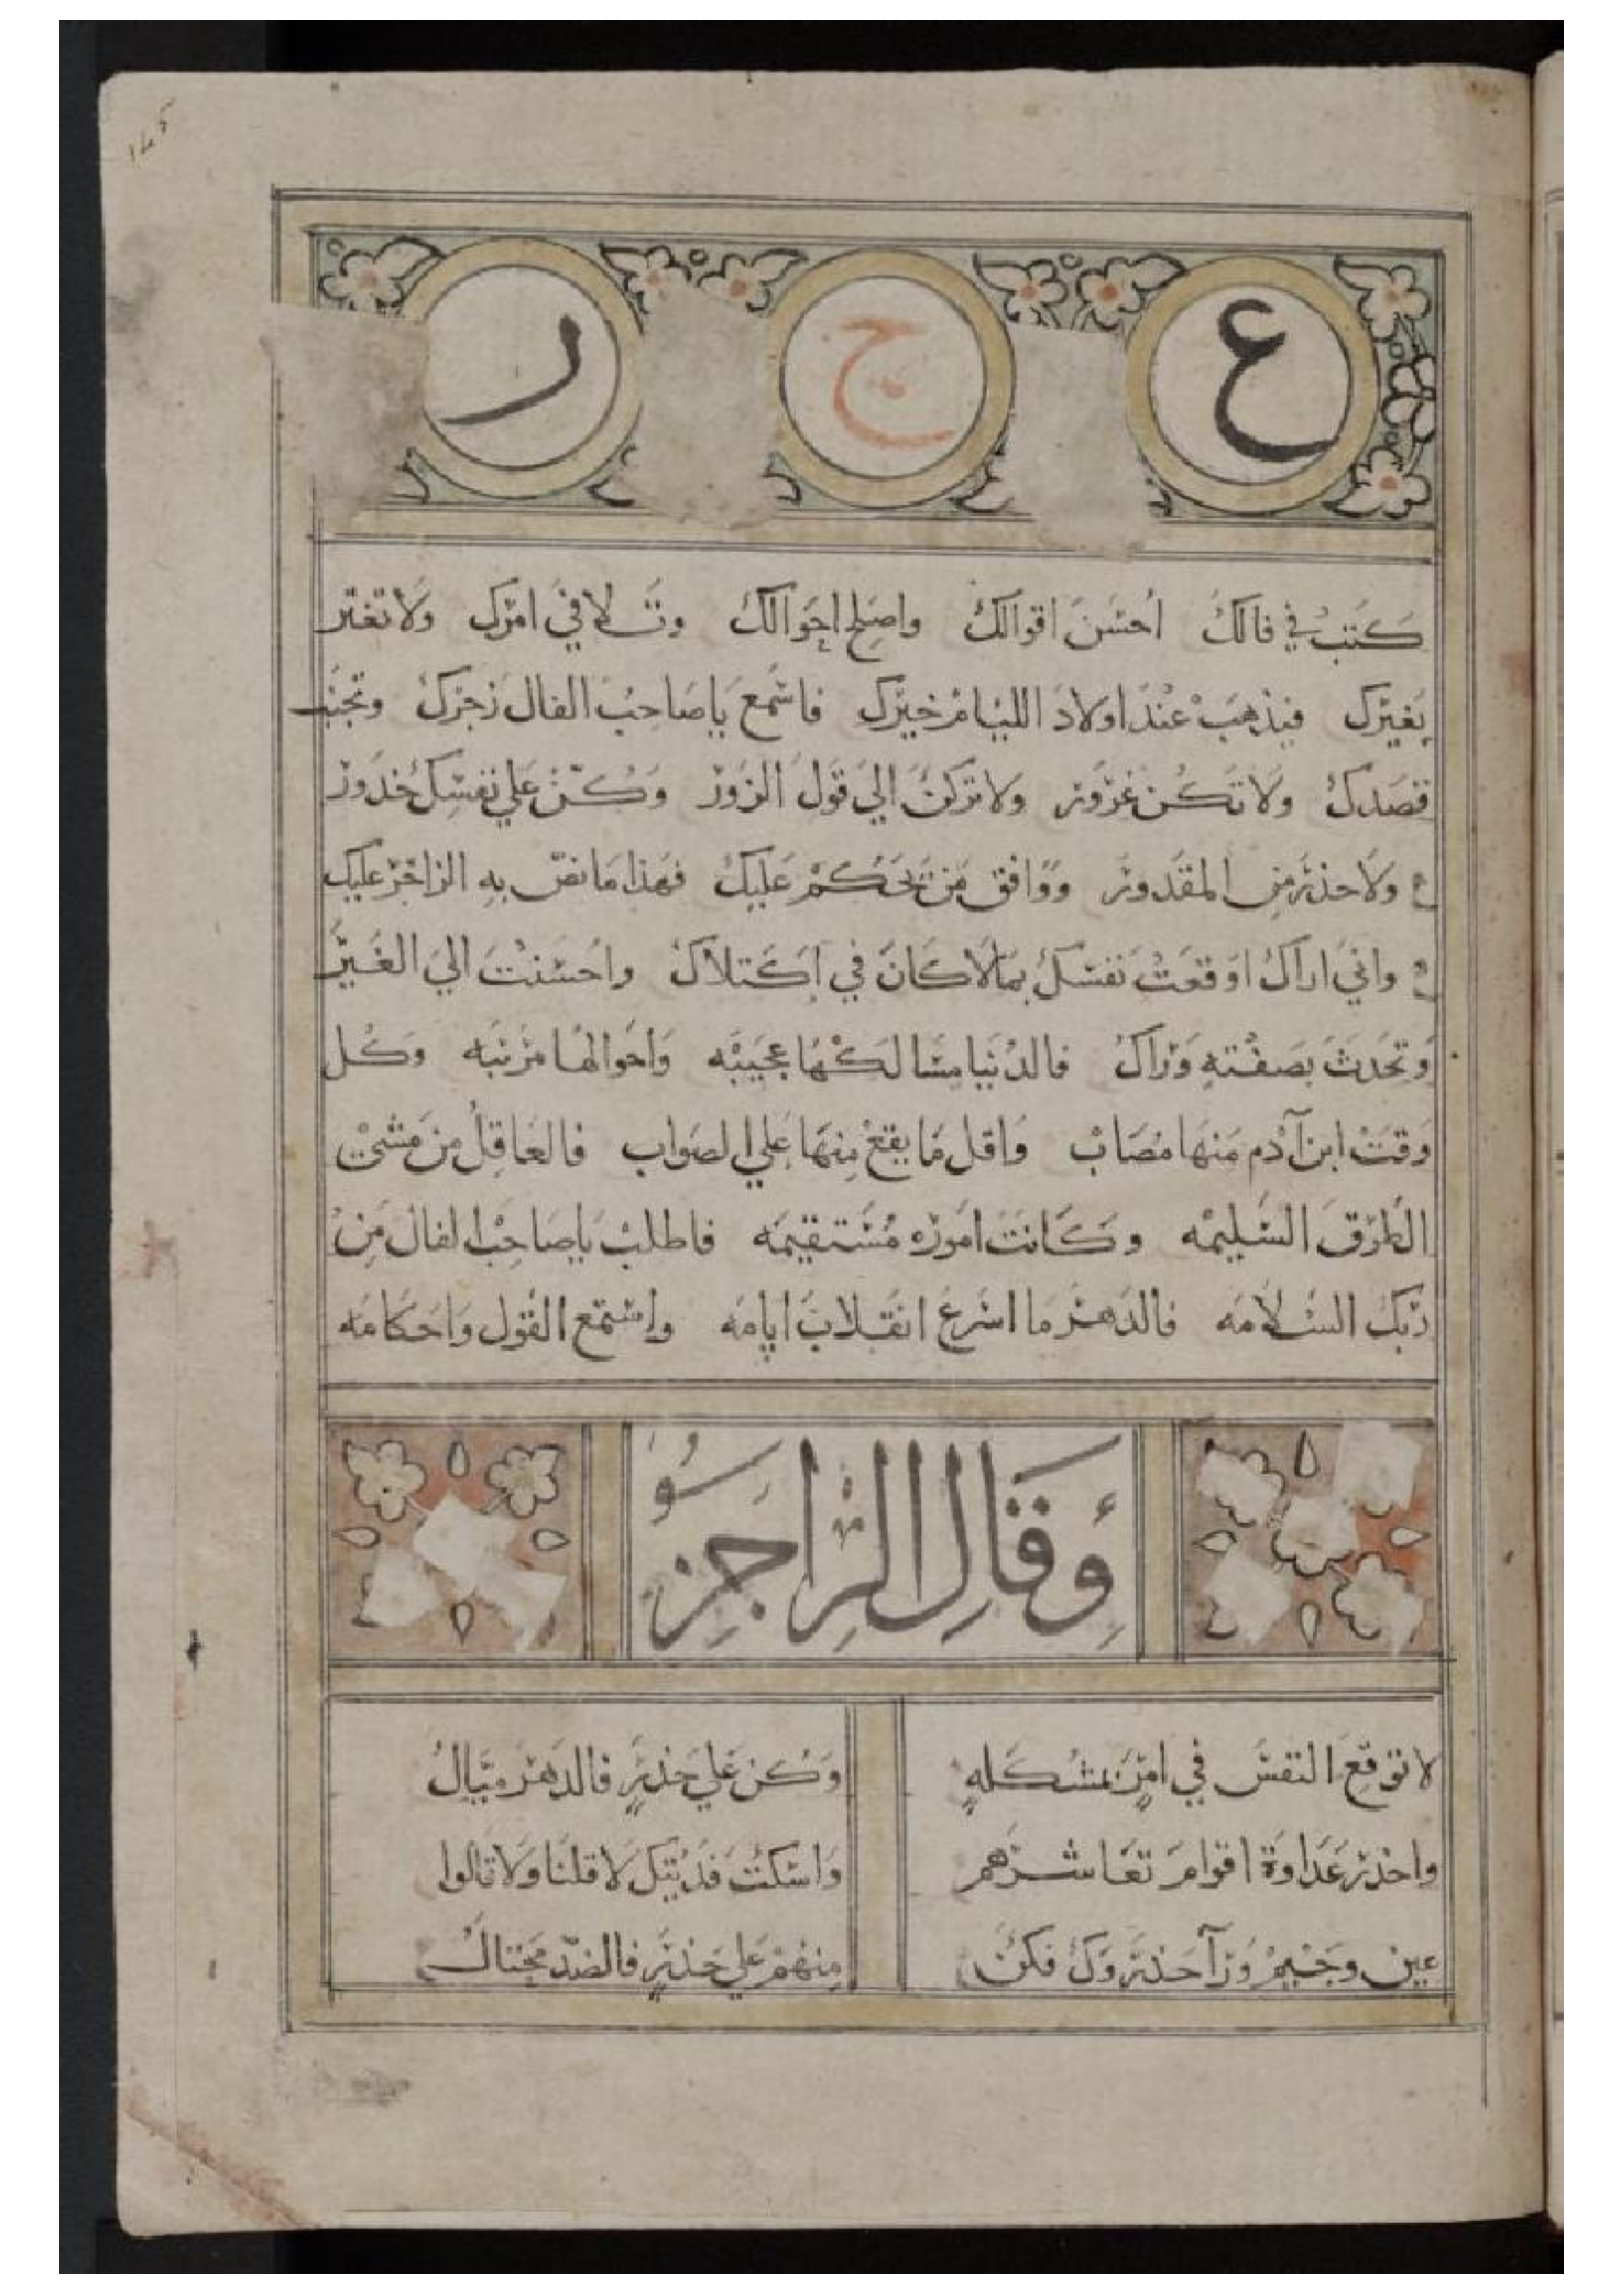 ع ج ر
كتب في فالك احسن اقوالك واصلح احوالك وتسلا في امرك ولا تغتر
بغيرك فيذهب عند اولاد الليام خيرك فاسمع يا صاحب الفال زجرك وتجنب
قصدك ولا تكن غرور ولا تركن الي قول الزور وكن علي نفسك حدور
ولا حذر من المقدور ووافق من تحكم عليك فهذا ما نص به الزاجر عليك
واني اراك اوقعت نفسك بما لا كان في اكتلاك واحسنت الي الغير
وتحدث بصفته وراك فالدنيا مسالكها عجيبه واحوالها مرتبه وكل
وقت ابن آدم منها مصاب واقل ما يقع منها علي الصواب فالعاقل من مشي
الطرق السليمه وكانت اموره مستقيمه فاطلب يا صاحب الفال من
ربك السلامه فالدهر ما اسرع انقلاب ايامه واستمع القول واحكامه
وقال الراجز
لا توقع النفس في امر بمشكله وكن علي حذر فالدهر ميال
واحذر عداوة اقوام تعاشرهم واسكت فديتك لا قلنا ولا قالوا
عين وجيم ورآ حذروك فكن منهم علي حذر فالضد محتال